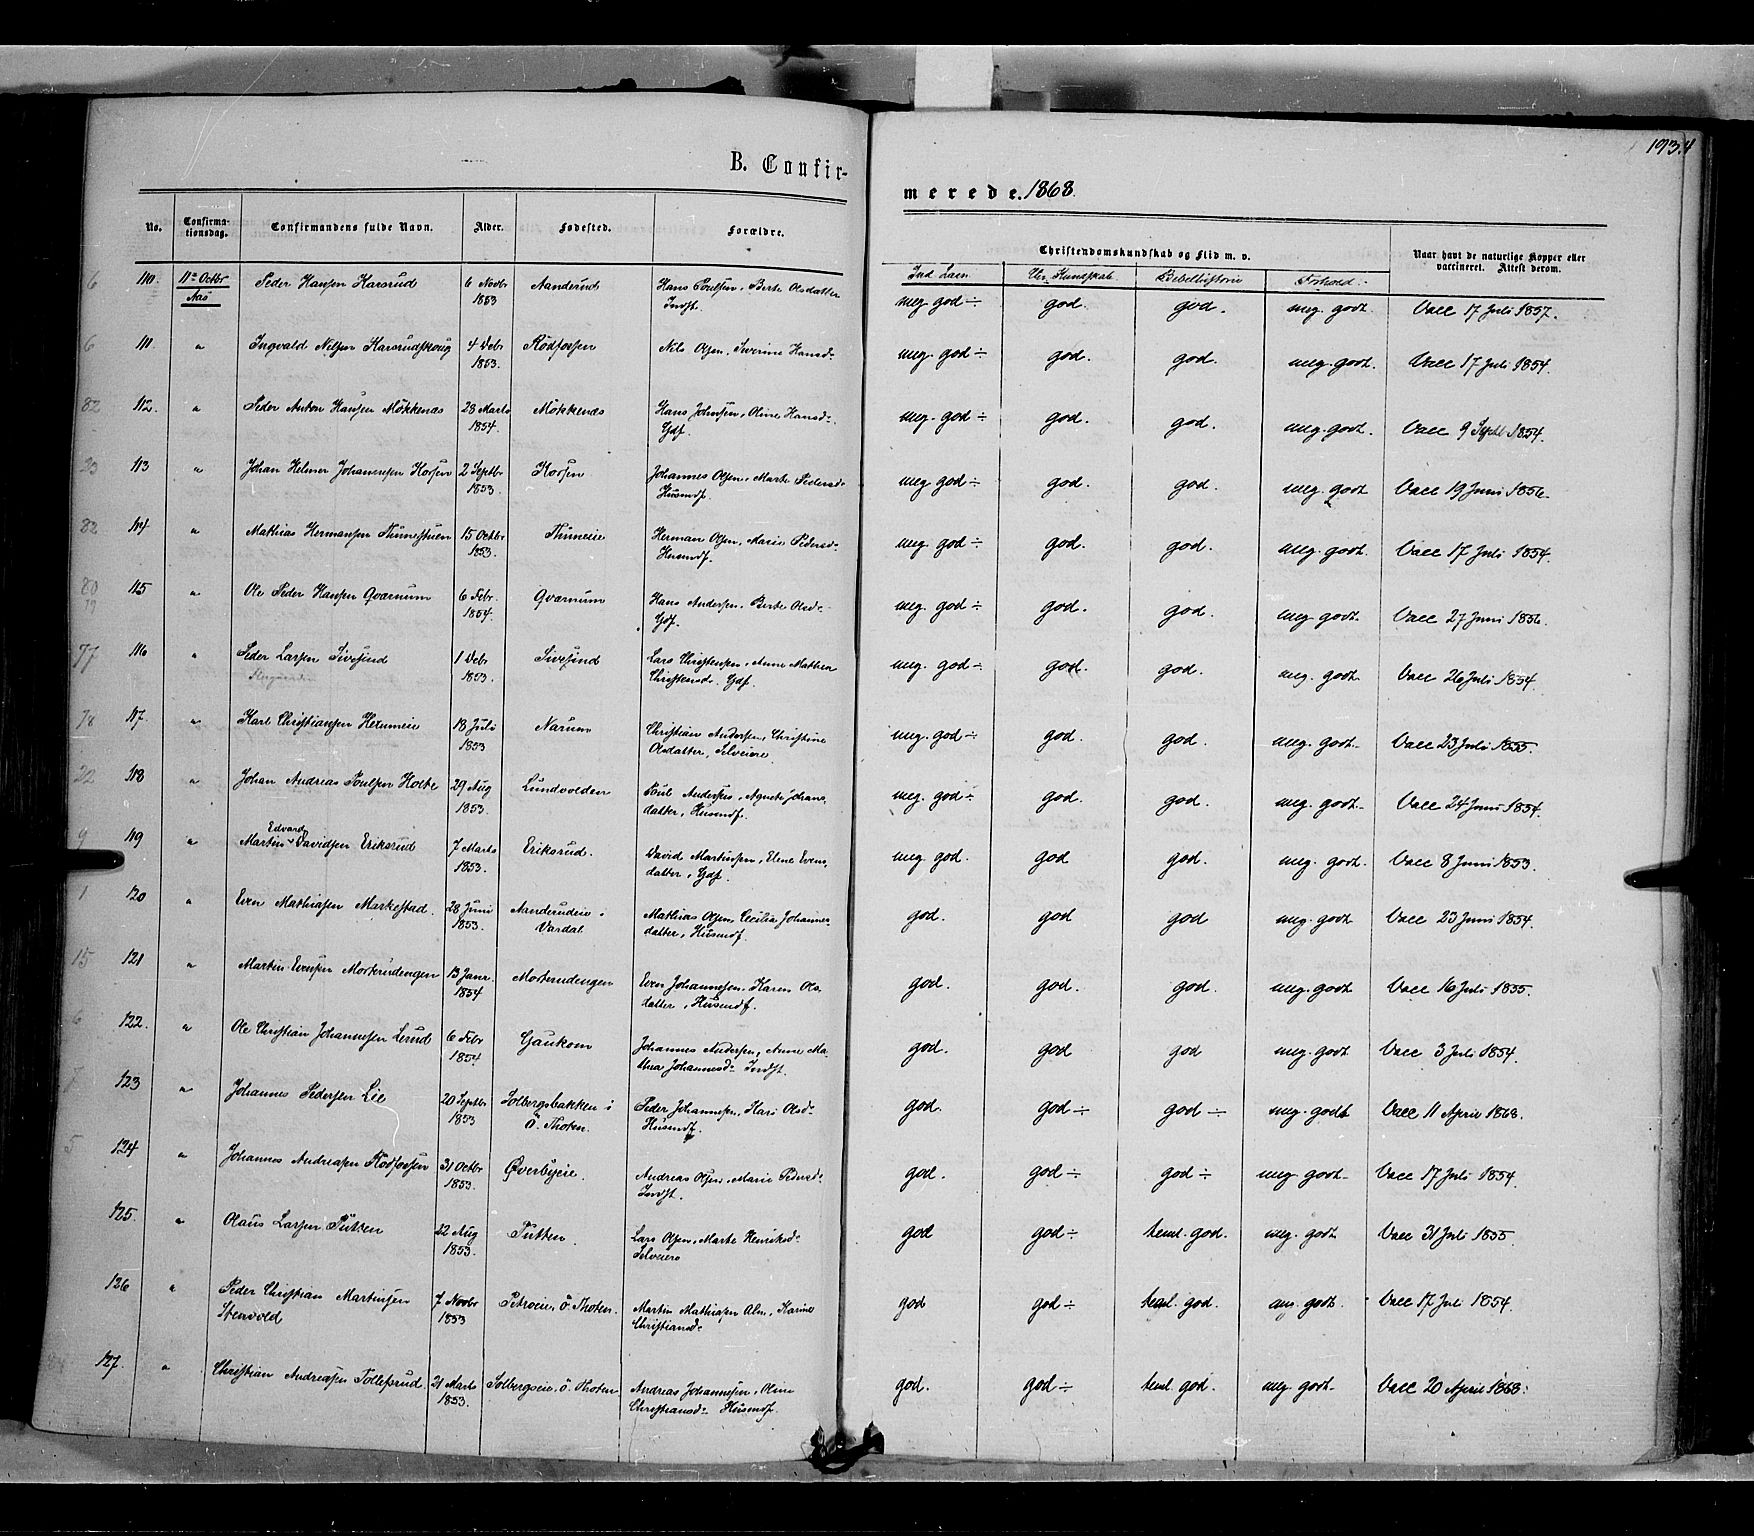 B. Confir-
merede. 1868.
1934
No. Confirma-tionsdag. Confirmandens fulde Navn. Alder. Fødested. Forældre.
Christendomskundskab og Flid m. v. Naar havt de naturlige Kopper eller vaccineret. Attest derom.
Ind. Læsn. Chr. Kundskab Bibelhistorie Forhold
6 110. 11te Octbr Aas Peder Hansen Karsrud 6 Novbr 1853 Aanderud Hans Poulsen, Berte Olsdatter Indst. meg. god ÷ god. god. meg. godt. Vacc 17 Juli 1857.
6 111. " Ingvald Nilsen Karsrudskoug 4 Debr 1853. Rödfossen Nils Olsen, Severine Hansd: meg. god ÷ god. god. meg. godt. Vacc 17 Juli 1854.
82 112. " Peder Anton Hansen Mökkenæs 28 Marts 1854. Mökkenæs Hans Johnsen, Oline Hansd: Gdf. meg. god ÷ god. god. meg. godt. Vacc 9 Septb 1854.
23 113 " Johan Helmer Johannessen Korsen 2 Septbr 1853 Korsen Johannes Olsen, Marte Pedersd: Husmdf. meg. god ÷ god. god. meg. godt Vacc 19 Juni 1856.
82 114 " Mathias Hermansen Thunestuen 15 Octbr 1853. Thuneeie Herman Olsen, Marie Pedersd: Husmdf. meg. god ÷ god. god. meg. godt. Vacc 17 Juli 1854.
80 19 115 " Ole Peder Hansen Qvarnum 6 Febr. 1854. Qvarnum Hans Andersen, Berte Olsd: Gdf. meg. god ÷ god. god. meg. godt. Vacc 27 Juni 1856.
77 116 " Peder Larsen Sivesind 1 Debr 1853. Sivesind Lars Christensen, Anne Mathea Christensd: Gdf. meg. god ÷ god. god. meg. godt. Vacc 26 Juli 1854.
78 117. " Karl Christiansen Hexumeie 18 Juli 1853 Narum Christian Andersen, Christine Olsdatter, Selveiere. meg. god ÷ god. god. meg. godt. Vacc 23 Juli 1855.
22 118 " Johan Andreas Poulsen Holte 29 Aug 1853. Lundvolden Poul Andersen, Agnete Johans-datter, Husmdf. meg. god ÷ god. god. meg. godt. Vacc 24 Juni 1854.
9 119 " Martin Edvard Davidsen Eriksrud 7 Marts 1853. Eriksrud. David Martinsen, Elene Evens-datter, Gdf. meg. god. god god. meg. godt. Vacc 8 Juni 1853.
1 120 " Even Mathiasen Markestad. 28 Juni 1853. Aanderudeie i Vardal. Mathias Olsen, Cecilia Johannes-datter, Husmdf. god. god god meg. godt Vacc 23 Juni 1854.
15 121 " Martin Evensen Morterudengen 13 Janr. 1854 Morterudengen Even Johannesen, Karen Ols-datter, Husmdf. god. god. god. meg. godt Vacc 16 Juli 1855.
6 122. " Ole Christian Johannesen Lerud 6 Febr 1854 Gaukom Johannes Andersen, Anne Ma-thea Johannesd: Indst. god. god god meg. godt Vacc 3 Juli 1854.
7 123 " Johannes Pedersen Lie 20 Septbr 1853 Solbergsbakken i Ö. Thoten. Peder Johannesen, Kari Olsd: Husmdf. god. god ÷ god ÷ meg. godt Vacc 11 April 1868.
5 124 " Johannes Andreasen Rödfossen 31 Octbr 1853. Øverbyeie. Andreas Olsen, Marie Pedersd: Indst. god. god ÷ god ÷ meg godt. Vacc 17 Juli 1854.
125. " Olaus Larsen Putten 22 Aug 1853. Putten. Lars Olsen, Marte Henriksd: Selveiere god god ÷ teml. god. meg. godt Vacc 31 Juli 1855.
126 " Peder Christian Martinsen Stenvold 7 Novbr 1853 Petroeie, Ö. Thoten. Martin Mathiasen Alm, Karine Christiansd: god god ÷ teml. god. meg. godt. Vacc 17 Jul 1854.
127. " Christian Andreasen Tollefsrud. 21 Marts 1853. Solbergseie, Ö. Thoten Andreas Johannesen, Oline Christiansd: Husmdf. god. god ÷ teml. god. meg. godt. Vacc 20 April 1868.